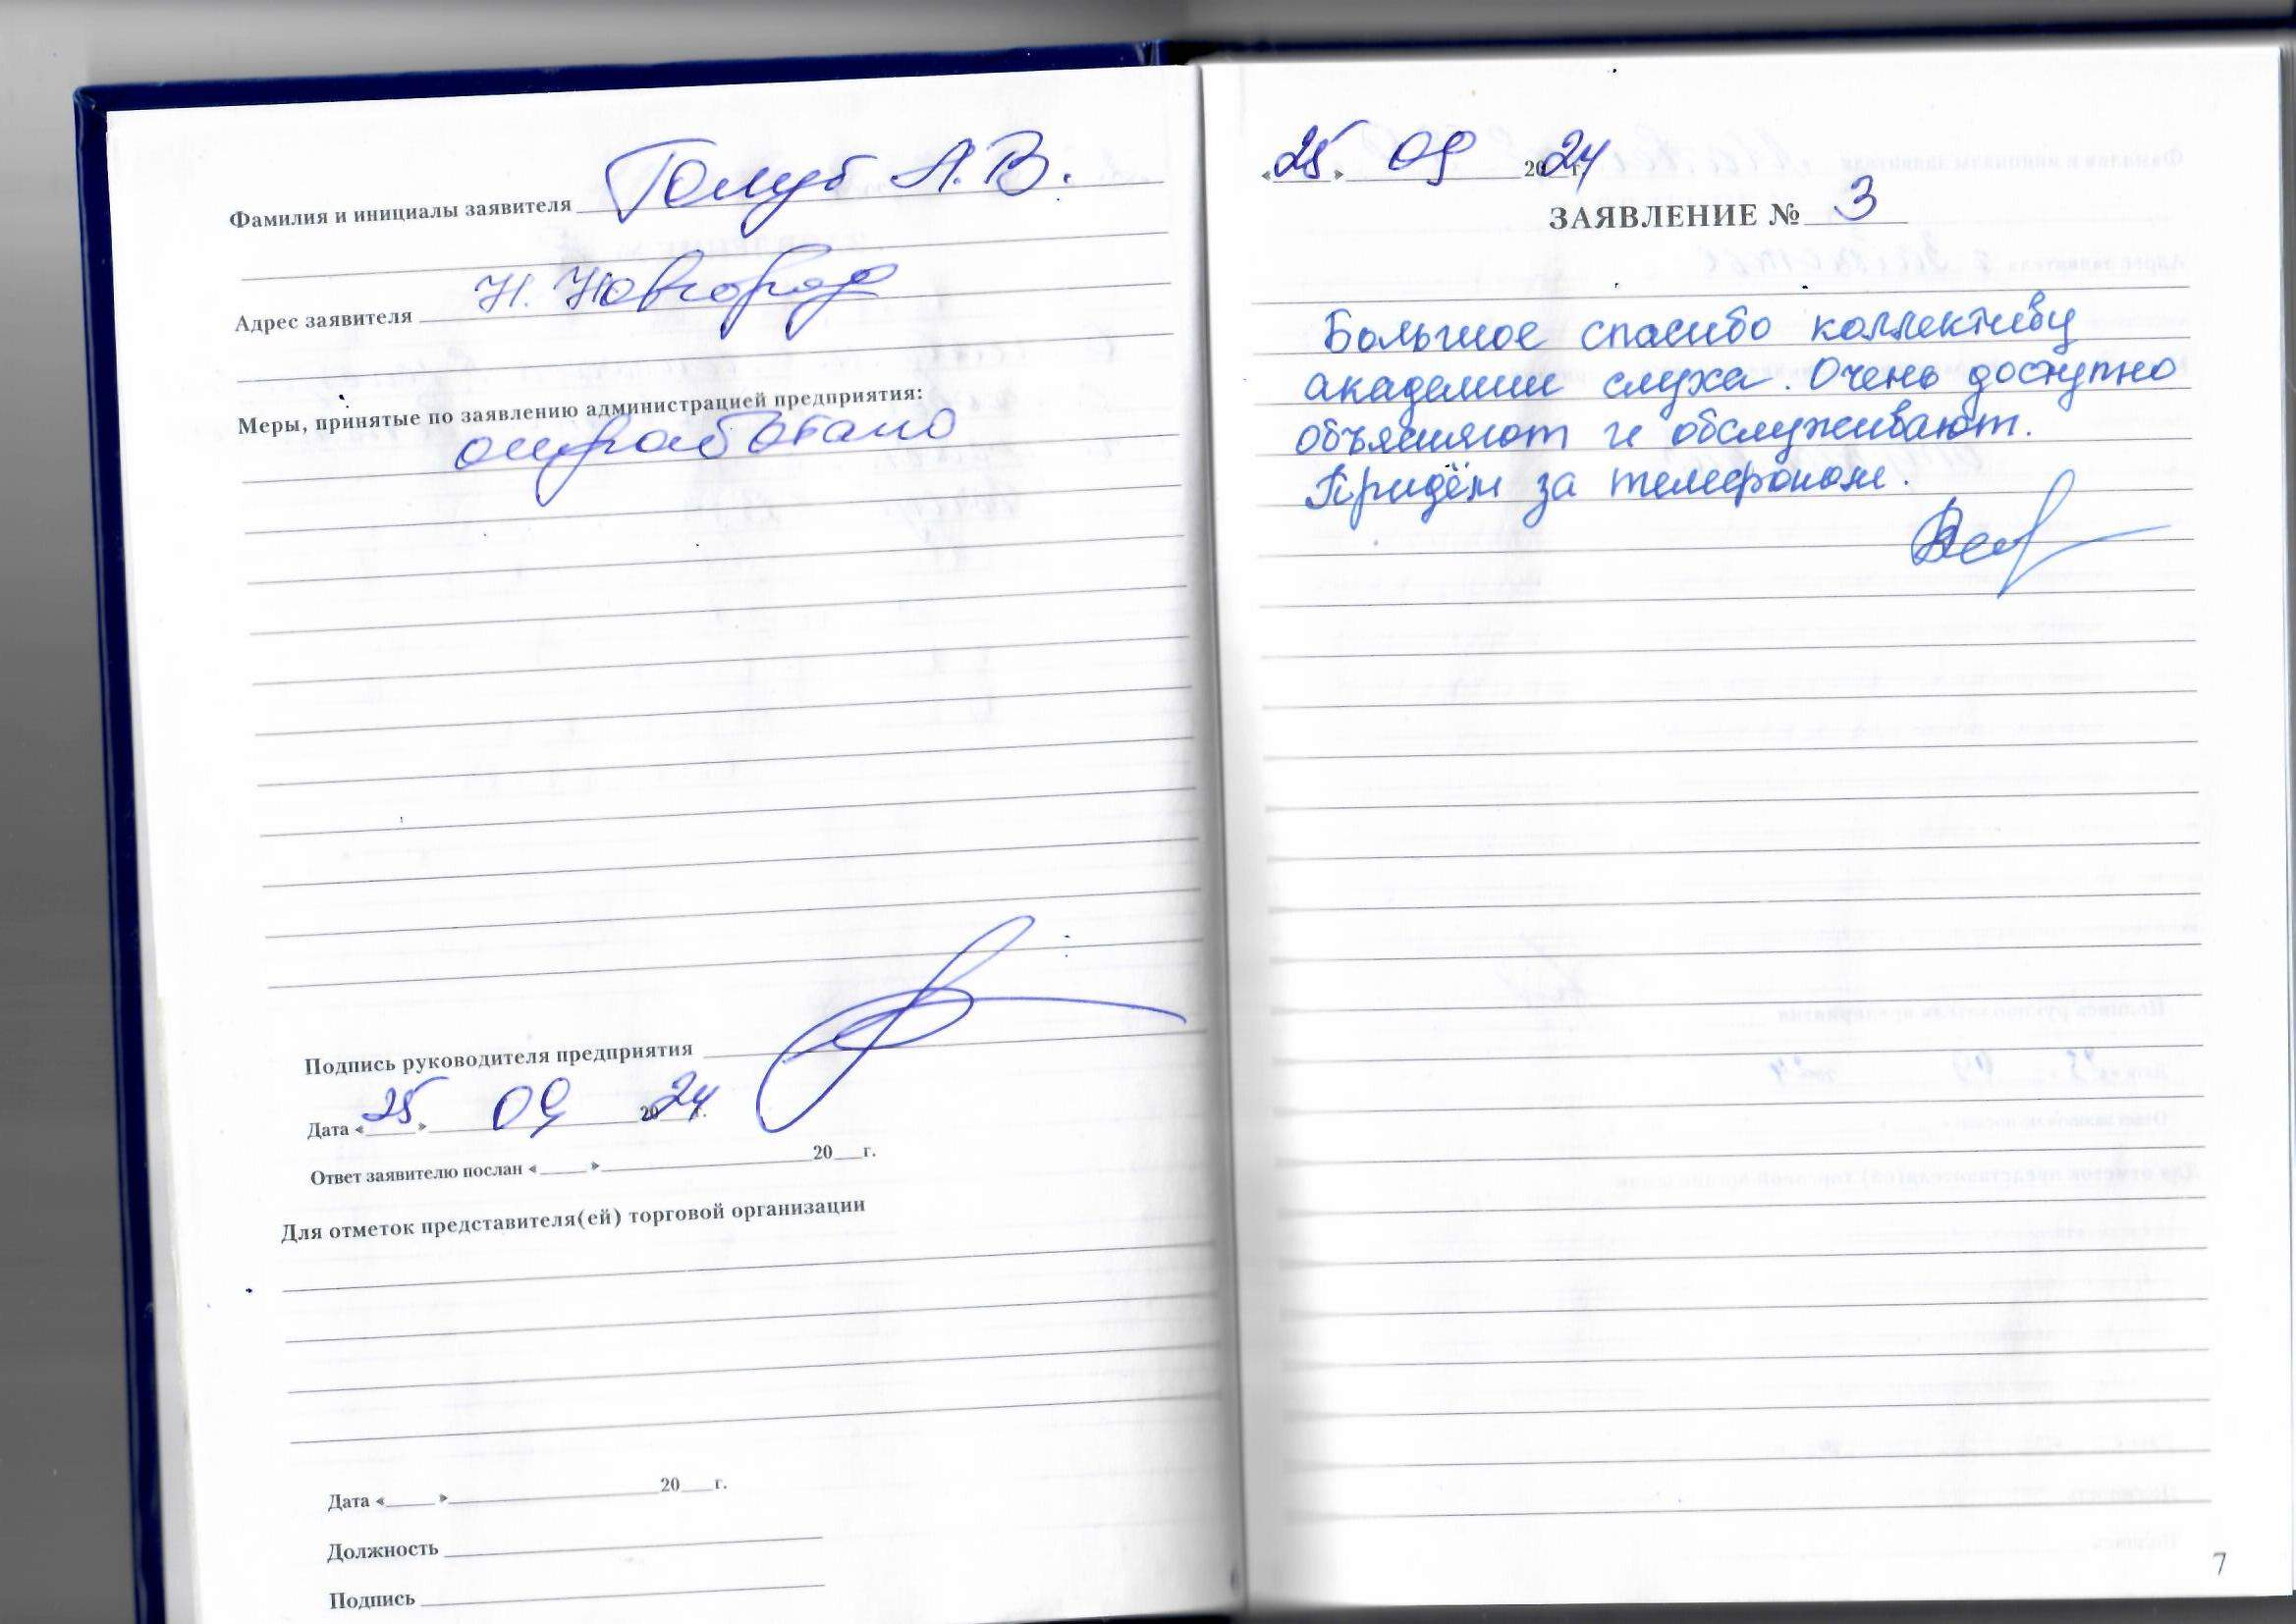 Фамилия и инициалы заявителя Голуб А.В.
Адрес заявителя Н. Новгород
Меры, принятые по заявлению администрацией предприятия:
отработано
Подпись руководителя предприятия
Дата «25» 09 2024 г.
Ответ заявителю послан «____» ____ 20__г.
Для отметок представителя(ей) торговой организации
Дата «____» ____ 20__г.
Должность
Подпись
«25» 09 2024 г.
ЗАЯВЛЕНИЕ № 3
Большое спасибо коллективу
академии слуха. Очень доступно
объясняют и обслуживают.
Придём за телефоном.
7